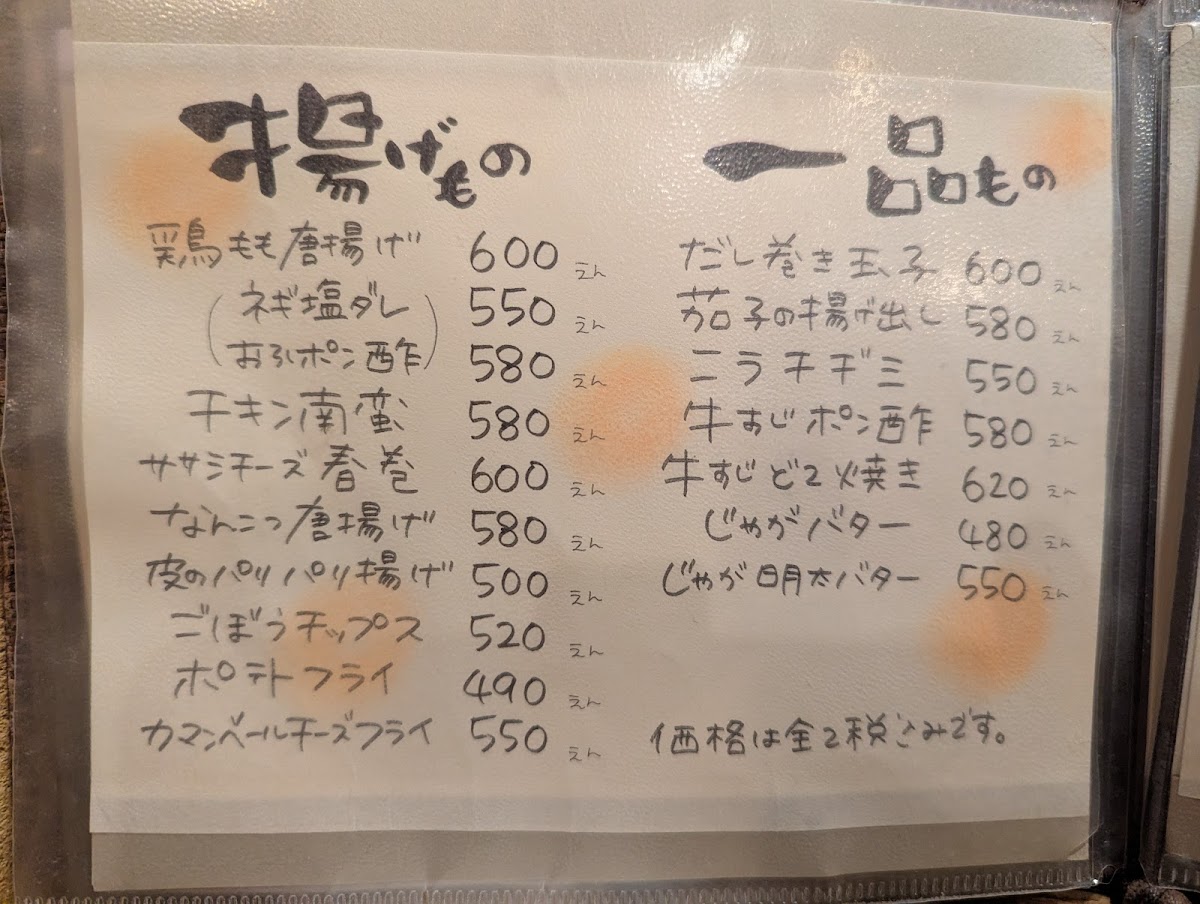 揚げもの
鶏もも唐揚げ 600えん
(ネギ塩ダレ 550えん
おろしポン酢) 580えん
チキン南蛮 580えん
ササミチーズ春巻 600えん
なんこつ唐揚げ 580えん
皮のパリパリ揚げ 500えん
ごぼうチップス 520えん
ポテトフライ 490えん
カマンベールチーズフライ 550えん
一品もの
だし巻き玉子 600えん
茄子の揚げ出し 580えん
ニラチヂミ 550えん
牛すじポン酢 580えん
牛すじどて焼き 620えん
じゃがバター 480えん
じゃが明太バター 550えん
価格は全て税ごみです。